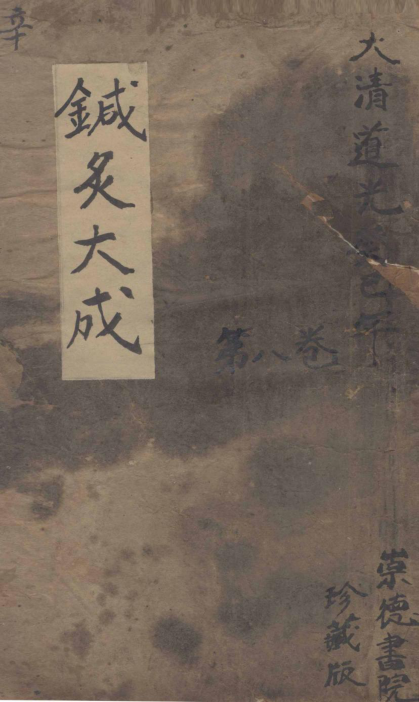 大清道光己年
崇德書院
珍藏版
第八卷
鍼灸大成
辛